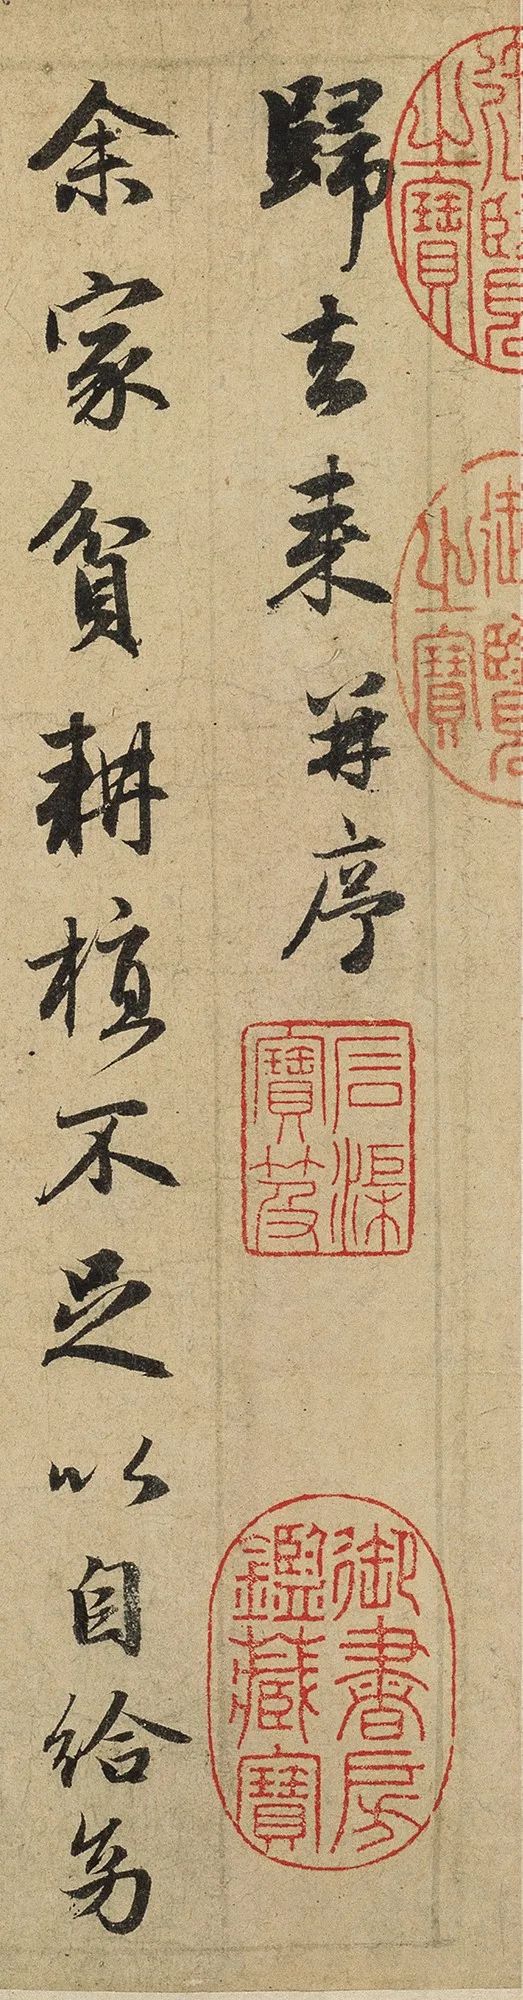 御覽
之寶
御覽
之寶
歸去来并序
石渠
寶笈
御書房
鑑藏寶
余家貧耕植不足以自給幼